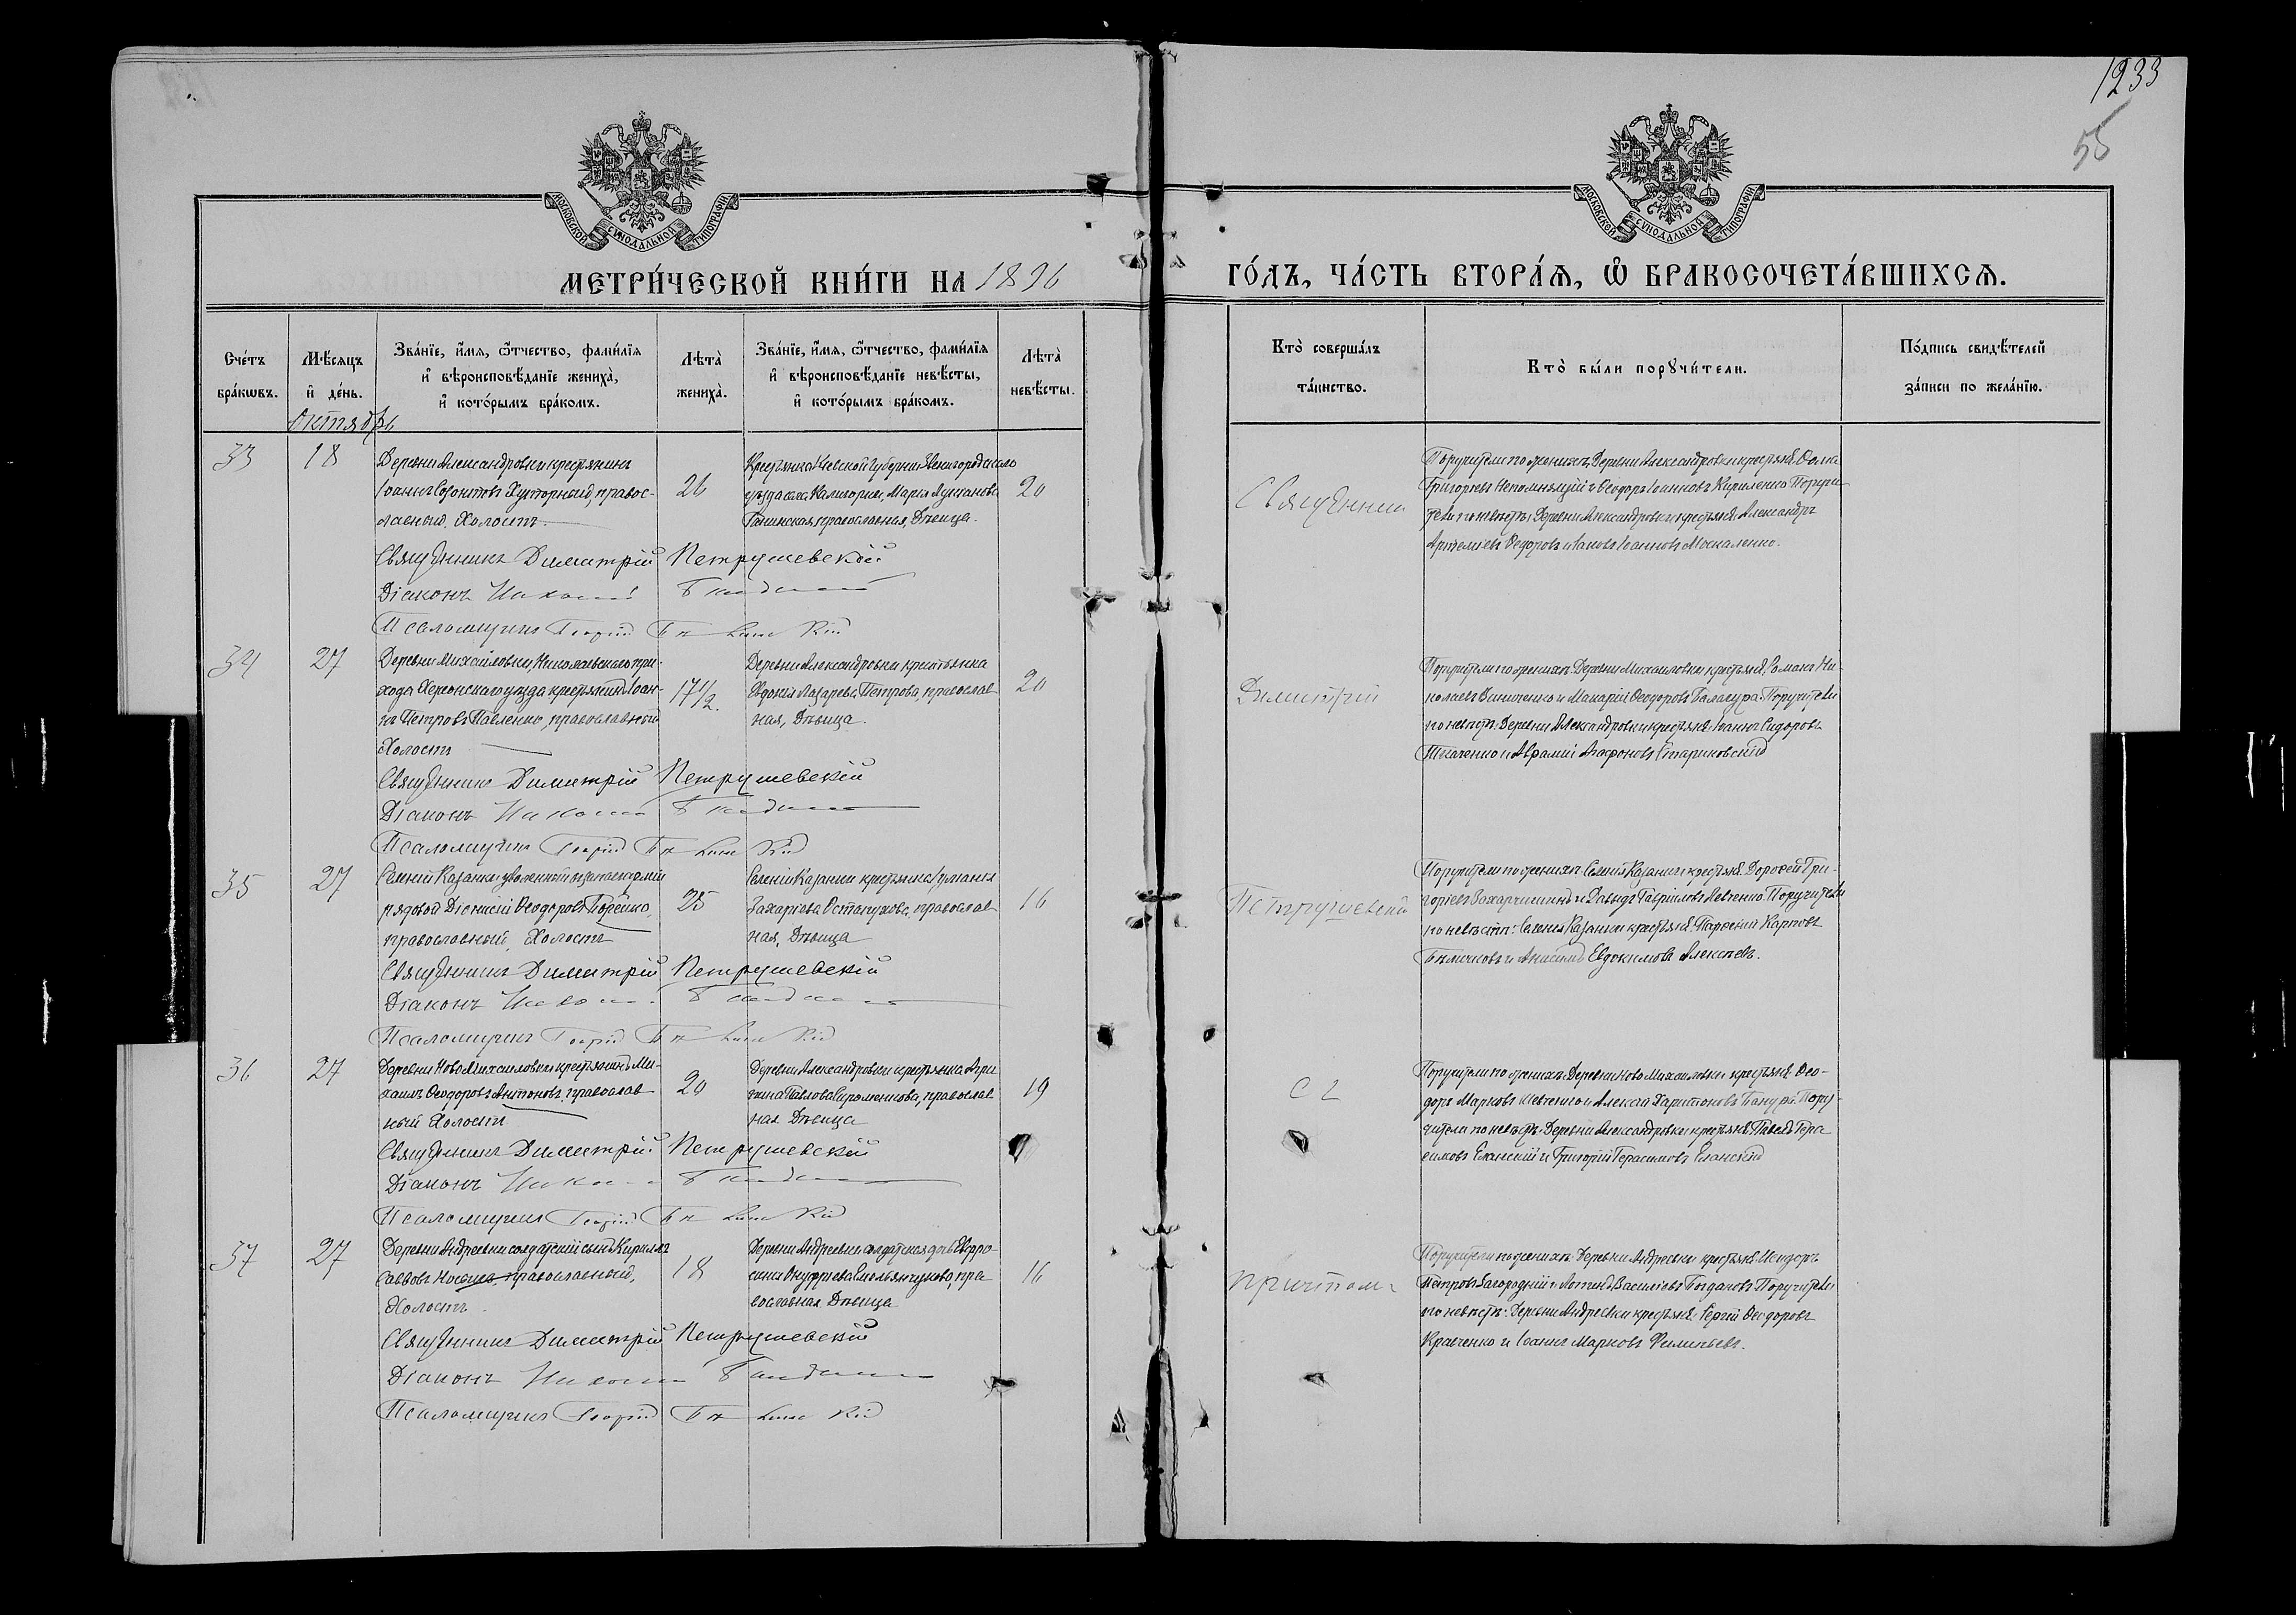 1233
55
МОСКОВСКОЙ СѴНОДАЛЬНОЙ ТИПОГРАФІИ
МОСКОВСКОЙ СѴНОДАЛЬНОЙ ТИПОГРАФІИ
МЕТРИ́ЧЕСКОЙ КНИ́ГИ НА 1896
ГО́ДЪ, ЧА́СТЬ ВТОРА́Я, Ѡ҆ БРАКОСОЧЕТА́ВШИХСЯ.
Сче́тъ бра́кѡвъ.
Мѣ́сяцъ и҆ де́нь.
Зва́нїе, и҆́мя, ѻ҆́тчество, фами́лїя
и҆ вѣроисповѣ́данїе жениха̀,
и҆ кото́рымъ бра́комъ.
Лѣта̀ жениха̀.
Зва́нїе, и҆́мя, ѻ҆́тчество, фами́лїя
и҆ вѣроисповѣ́данїе невѣ́сты,
и҆ кото́рымъ бра́комъ.
Лѣта̀ невѣ́сты.
Кто̀ соверша́лъ та́инство.
Кто̀ бы́ли порꙋчи́тели.
По́дпись свидѣ́телей за́писи по жела́нїю.
Октябрь
33
18
Деревни Александровки крестьянинъ
Іоаннъ Хуторный, правос-
лавный, Холостъ
26
Крестьянка Кіевской Губерніи Звенигородскаго
уѣзда села Марія
православная, Дѣвица.
20
Священникъ
Поручители по женихѣ: Деревни Александровки крестьяне
Григорьевъ Непомнящій и Ѳеодоръ Іоанновъ Кириленко Поручи-
тели по невѣстѣ: Деревни Александровки крестьяне Александръ
Артемьевъ Федоровъ и Іаковъ Іоанновъ Москаленко.
Священникъ Димитрій Петрушевскій
Діаконъ
Псаломщикъ Георгій
34
27
Деревни Михайловки, Николаевскаго при-
хода Херсонскаго уѣзда крестьянинъ Іоан-
нъ Петровъ Павленко, православный
Холостъ
17 1/2.
Деревни Александровки крестьянка
Евдокія Лазарева Петрова, православ
ная, Дѣвица.
20
Димитрій
Поручители по женихѣ: Деревни Михайловки крестьяне Романъ Ни-
колаевъ Винниченко и Макарій Ѳеодоровъ Балагура. Поручители
по невѣстѣ: Деревни Александровки крестьяне Іоаннъ Сидоровъ
Ткаченко и Аврамій Агафоновъ Стариковскій
Священникъ Димитрій Петрушевскій
Діаконъ
Псаломщикъ Георгій
35
27
Селенія Казанки уволенный въ запасъ арміи
рядовой Діонисій Ѳеодоровъ
православный, Холостъ
25
Селенія Казанки крестьянка Іуліанія
Захаріева Остапукова, православ
ная, Дѣвица
16
Петрушевскій
Поручители по женихѣ: Селенія Казанки крестьяне Дорофей Гри-
горіевъ и Давидъ Гавріиловъ Левченко. Поручители
по невѣстѣ: Селенія Казанки крестьяне Парѳеній Карповъ
и Анисимъ Евдокимовъ Алексѣевъ.
Священникъ Димитрій Петрушевскій
Діаконъ
Псаломщикъ Георгій
36
27
Деревни Ново Михайловки крестьянинъ Ми-
хаилъ Ѳеодоровъ Антоновъ, православ
ный Холостъ
20
Деревни Александровки крестьянка Агри
пина Павлова православ
ная Дѣвица
19
съ
Поручители по женихѣ: Деревни Ново Михайловки крестьяне Ѳео-
доръ Марковъ Шевченко и Алексій Харитоновъ Пору-
чители по невѣстѣ: Деревни Александровки крестьяне Павелъ Гера
симовъ Еланскій и Григорій Герасимовъ Еланскій
Священникъ Димитрій Петрушевскій
Діаконъ
Псаломщикъ Георгій
37
27
Деревни Андреевки солдатскій сынъ Кириллъ
Саввовъ православный,
Холостъ.
18
Деревни Андреевки солдатская дочь Евфро-
сина Онуфріева Емельянчукова, пра
вославная Дѣвица
16
причтомъ
Поручители по женихѣ: Деревни Андреевки крестьяне
Петровъ Загородній и Василіевъ Богдановъ Поручители
по невѣстѣ: Деревни Андреевки крестьяне Сергій Ѳеодоровъ
Кравченко и Іоаннъ Марковъ Филипьевъ.
Священникъ Димитрій Петрушевскій
Діаконъ
Псаломщикъ Георгій